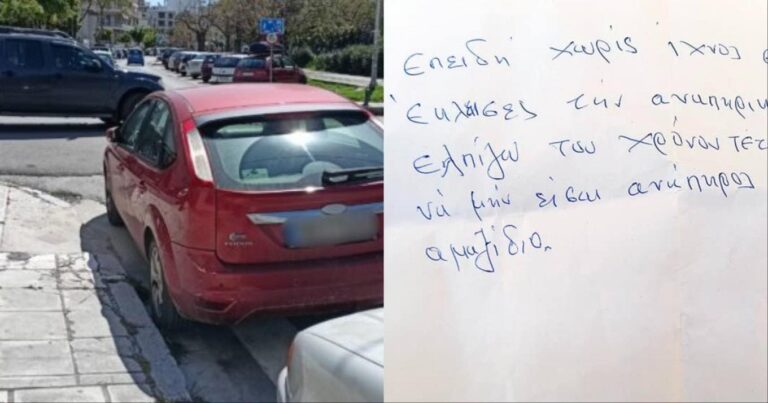 FOCUS
Επειδή χωρίς ίχνος
έκλεισες την αναπηρικ
ελπίζω του χρόνου τέτ
νά μήν είσαι ανάπηρος
αμαξίδιο.